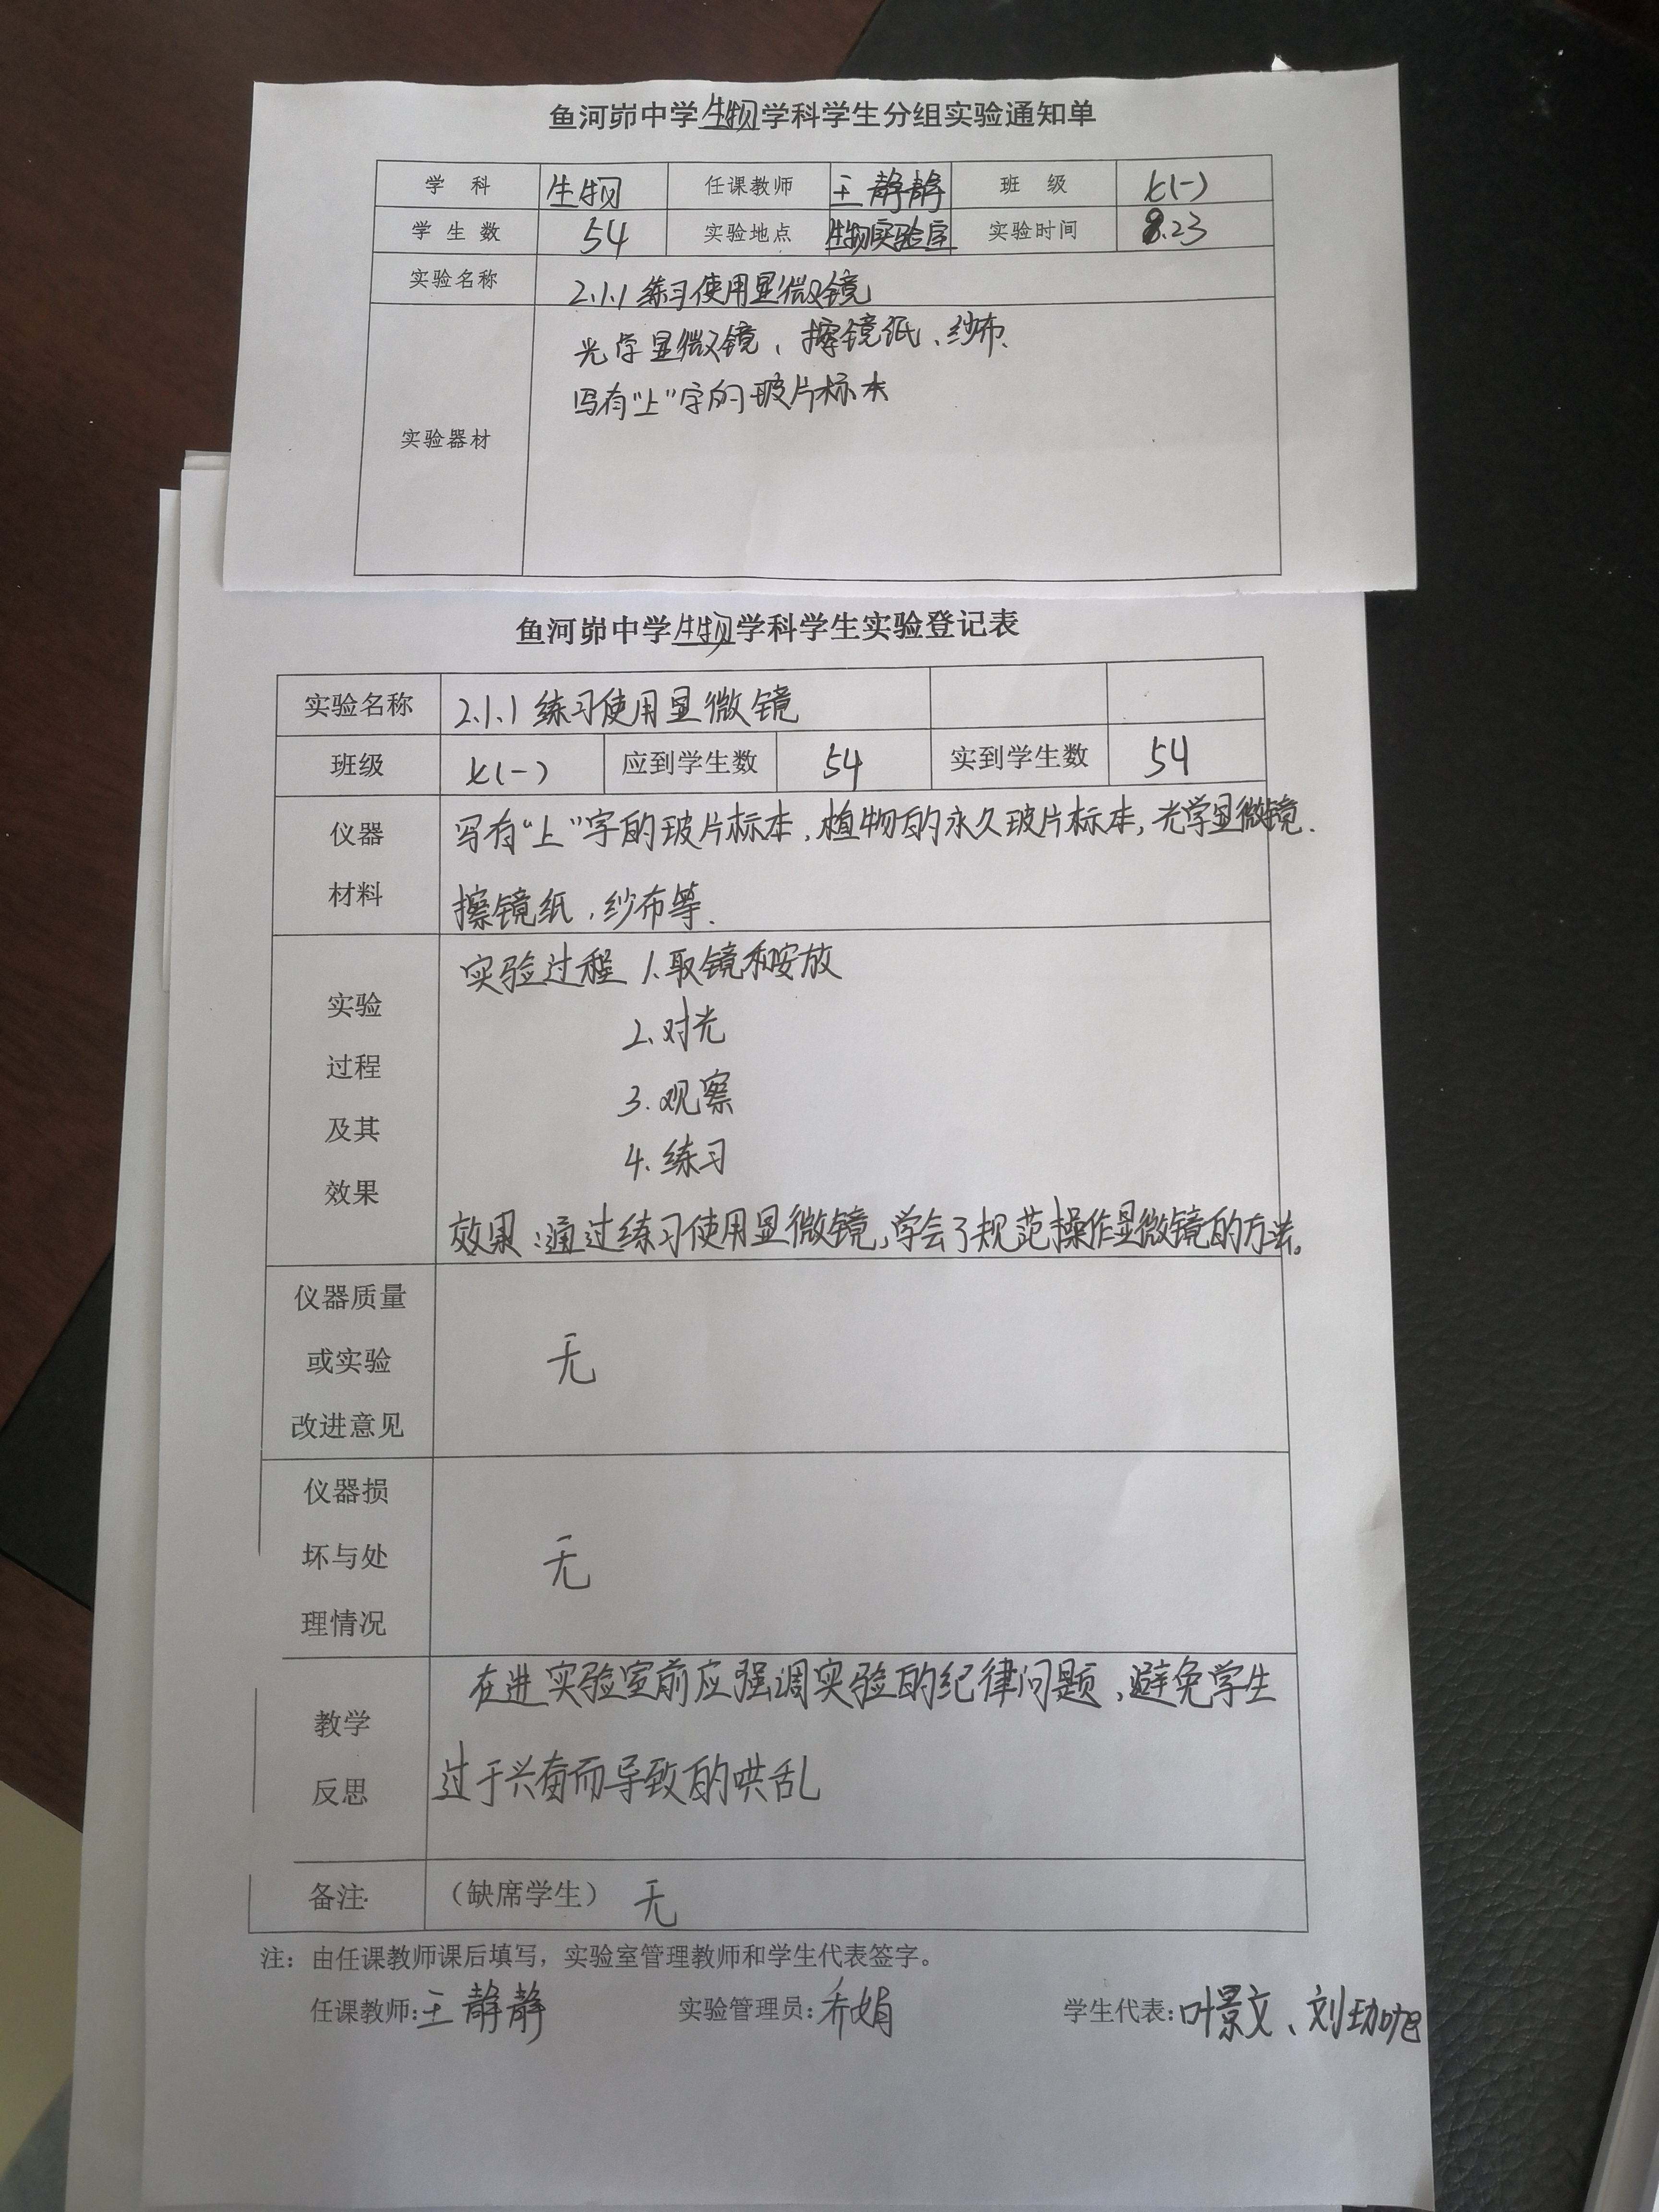 鱼河峁中学生物学科学生分组实验通知单
学 科 生物 任课教师 王静静 班 级 七(一)
学 生 数 54 实验地点 生物实验室 实验时间 8.23
实验名称 2.1.1 练习使用显微镜
实验器材 光学显微镜、擦镜纸、纱布、
写有“上”字的玻片标本
鱼河峁中学生物学科学生实验登记表
实验名称 2.1.1 练习使用显微镜
班级 七(一) 应到学生数 54 实到学生数 54
仪器 写有“上”字的玻片标本、植物的永久玻片标本,光学显微镜、
材料 擦镜纸、纱布等.
实验过程 1.取镜和安放
实验
2.对光
过程
3.观察
及其
4.练习
效果
效果:通过练习使用显微镜,学会了规范操作显微镜的方法。
仪器质量
或实验 无
改进意见
仪器损
坏与处 无
理情况
在进实验室前应强调实验的纪律问题、避免学生
教学
过于兴奋而导致的哄乱
反思
备注 (缺席学生) 无
注：由任课教师课后填写，实验室管理教师和学生代表签字。
任课教师:王静静 实验管理员:乔娟 学生代表:叶景文、刘